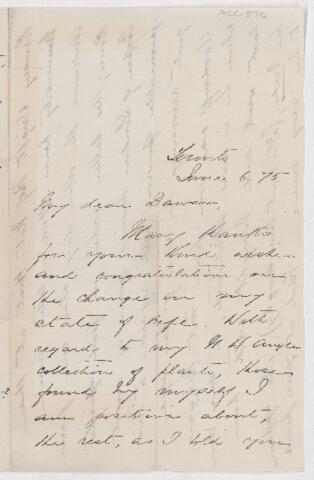 ACC-596
Toronto
June 6. 75
My dear Dawson,
Many thanks
for your kind wishes
and congratulations on
the change in my
state of life. With
regards to my N W Angle
collection of plants, those
found by myself I
am positive about,
the rest, as I told you,